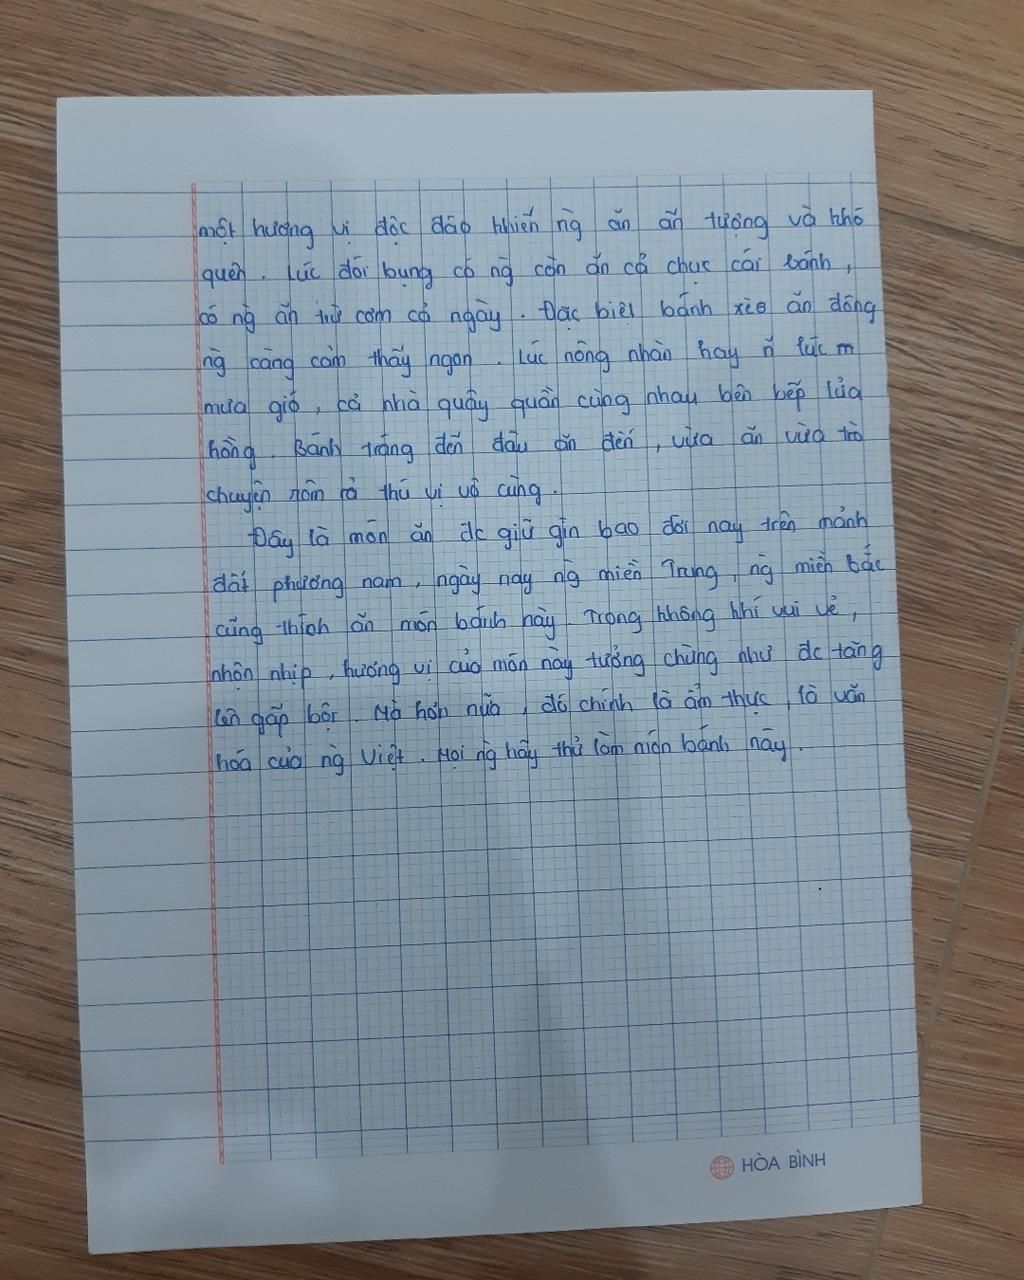 một hương vị độc đáo khiến ng̀ ăn ấn tượng và khó
quên. Lúc đói bụng có ng̀ còn ăn cả chục cái bánh,
có ng̀ ăn trừ cơm cả ngày. Đặc biệt bánh xèo ăn đông
ng̀ càng cảm thấy ngon. Lúc nông nhàn hay n lúc m
mưa gió, cả nhà quây quần cùng nhau bên bếp lửa
hồng. Bánh tráng đến đâu ăn đến, vừa ăn vừa trò
chuyện rôm rả thú vị vô cùng.
Đây là món ăn đc giữ gìn bao đời nay trên mảnh
đất phương nam, ngày nay ng̀ miền Trung, ng̀ miền bắc
cũng thích ăn món bánh này. Trong không khí vui vẻ,
nhộn nhịp, hương vị của món này tưởng chừng như đc tăng
lên gấp bội. Mà hơn nữa, đó chính là ẩm thực, là văn
hoá của ng̀ Việt. Mọi ng̀ hãy thử làm món bánh này.
HÒA BÌNH